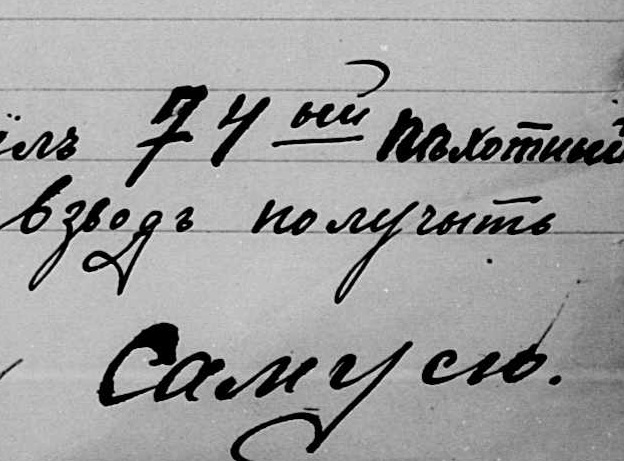 ёлъ 74 ый пѣхотный
взводъ получыть
Самусю.